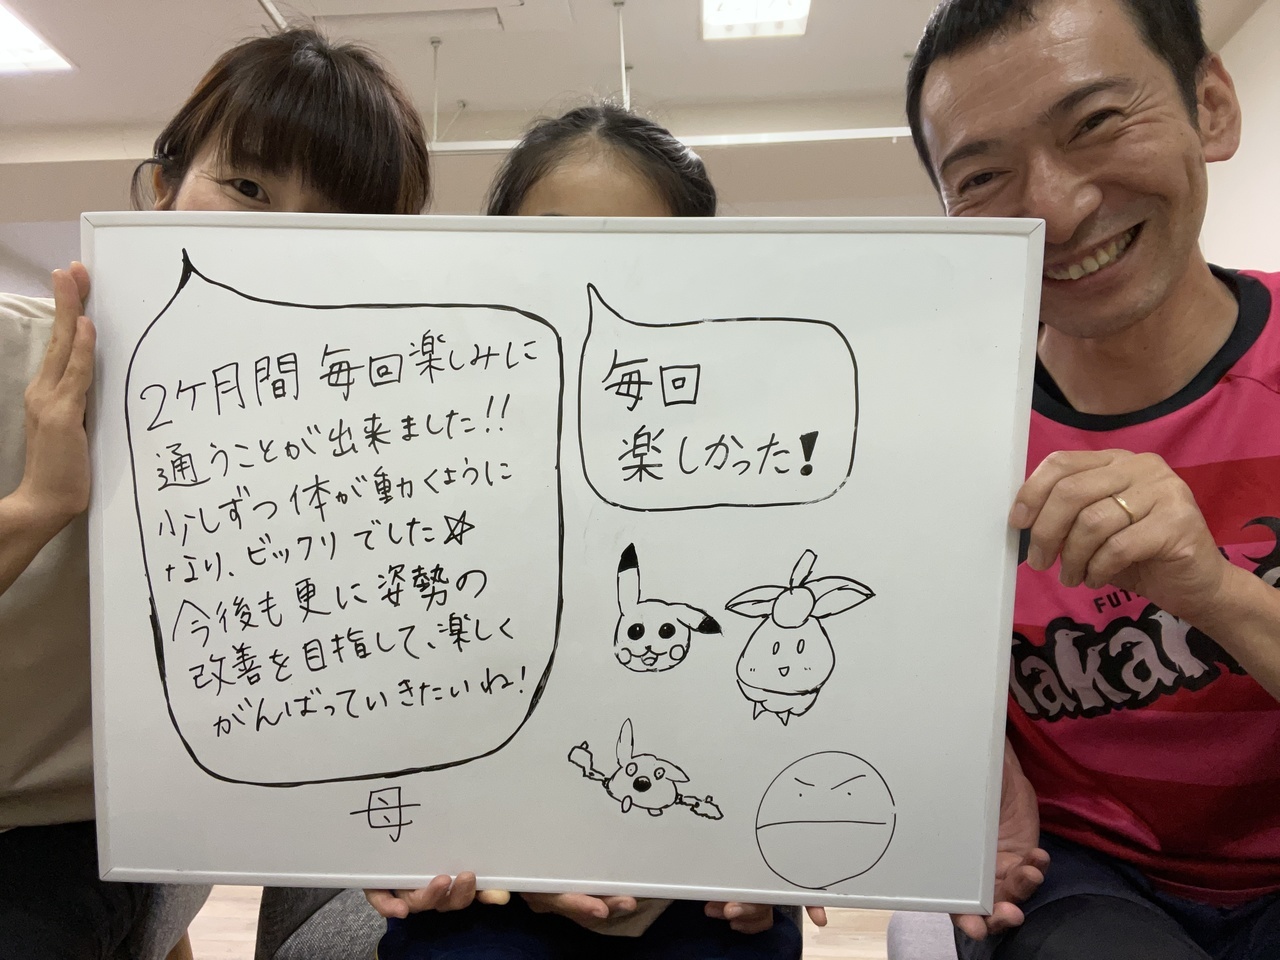 2ケ月間 毎回楽しみに
通うことが出来ました!!
少しずつ体が動くように
なり、ビックリでした☆
今後も更に姿勢の
改善を目指して、楽しく
がんばっていきたいね!
母
毎回
楽しかった!